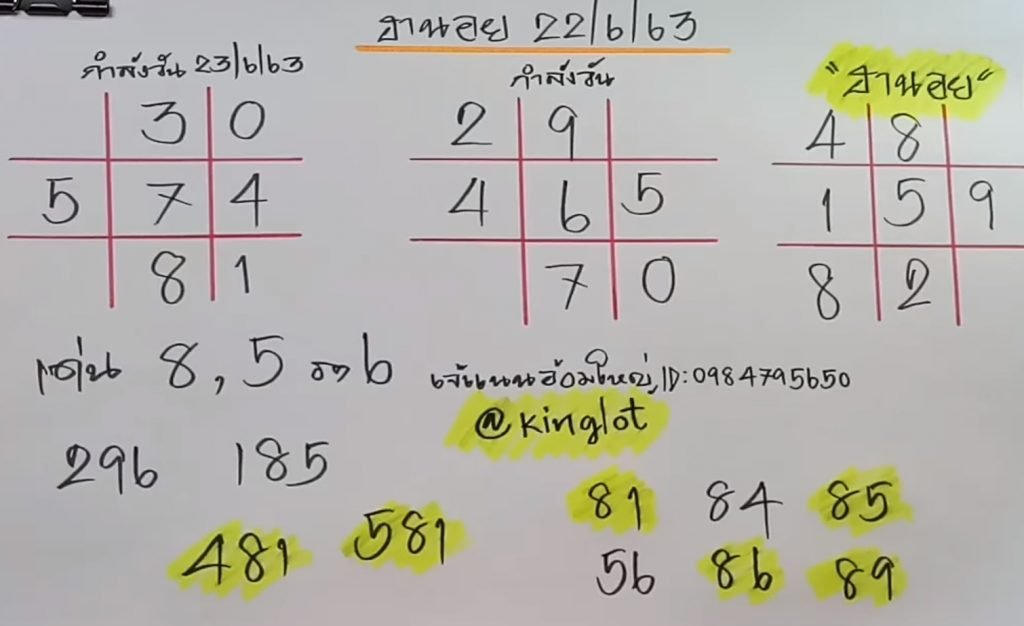 ฮานอย 22/6/63
กำลังวัน 23/6/63
3 0
5 7 4
8 1
กำลังวัน
2 9
4 6 5
7 0
"ฮานอย"
4 8
1 5 9
8 2
เด่น 8, 5 รอง 6
เจ๊แนนอ้อมใหญ่, ID: 0984795650
@kinglot
296 185
481 581
81 84 85
56 86 89